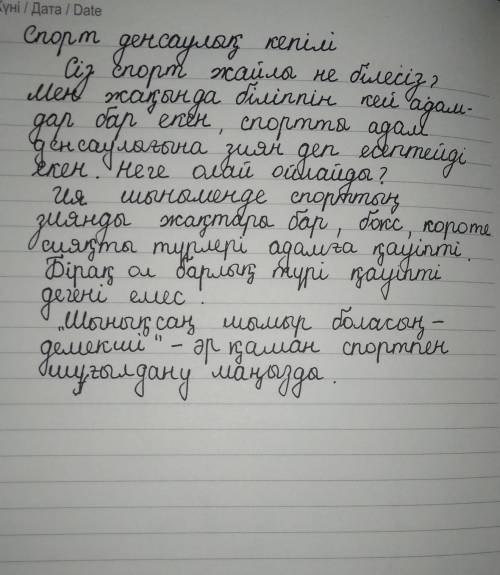 Күні / Дата / Date
Спорт денсаулық кепілі
Сіз спорт жайлы не білесіз?
Мен жақында біліппін кей адам-
дар бар екен, спортты адам
денсаулығына зиян деп есептейді
екен. Неге олай ойлайды?
Ия шыныменде спорттың
зиянды жақтары бар, бокс, короте
сияқты түрлері адамға қауіпті.
Бірақ ол барлық түрі қауіпті
дегені емес.
"Шынықсаң шымыр боласың -
демекші" - әр қаман спортпен
шұғылдану маңызды.